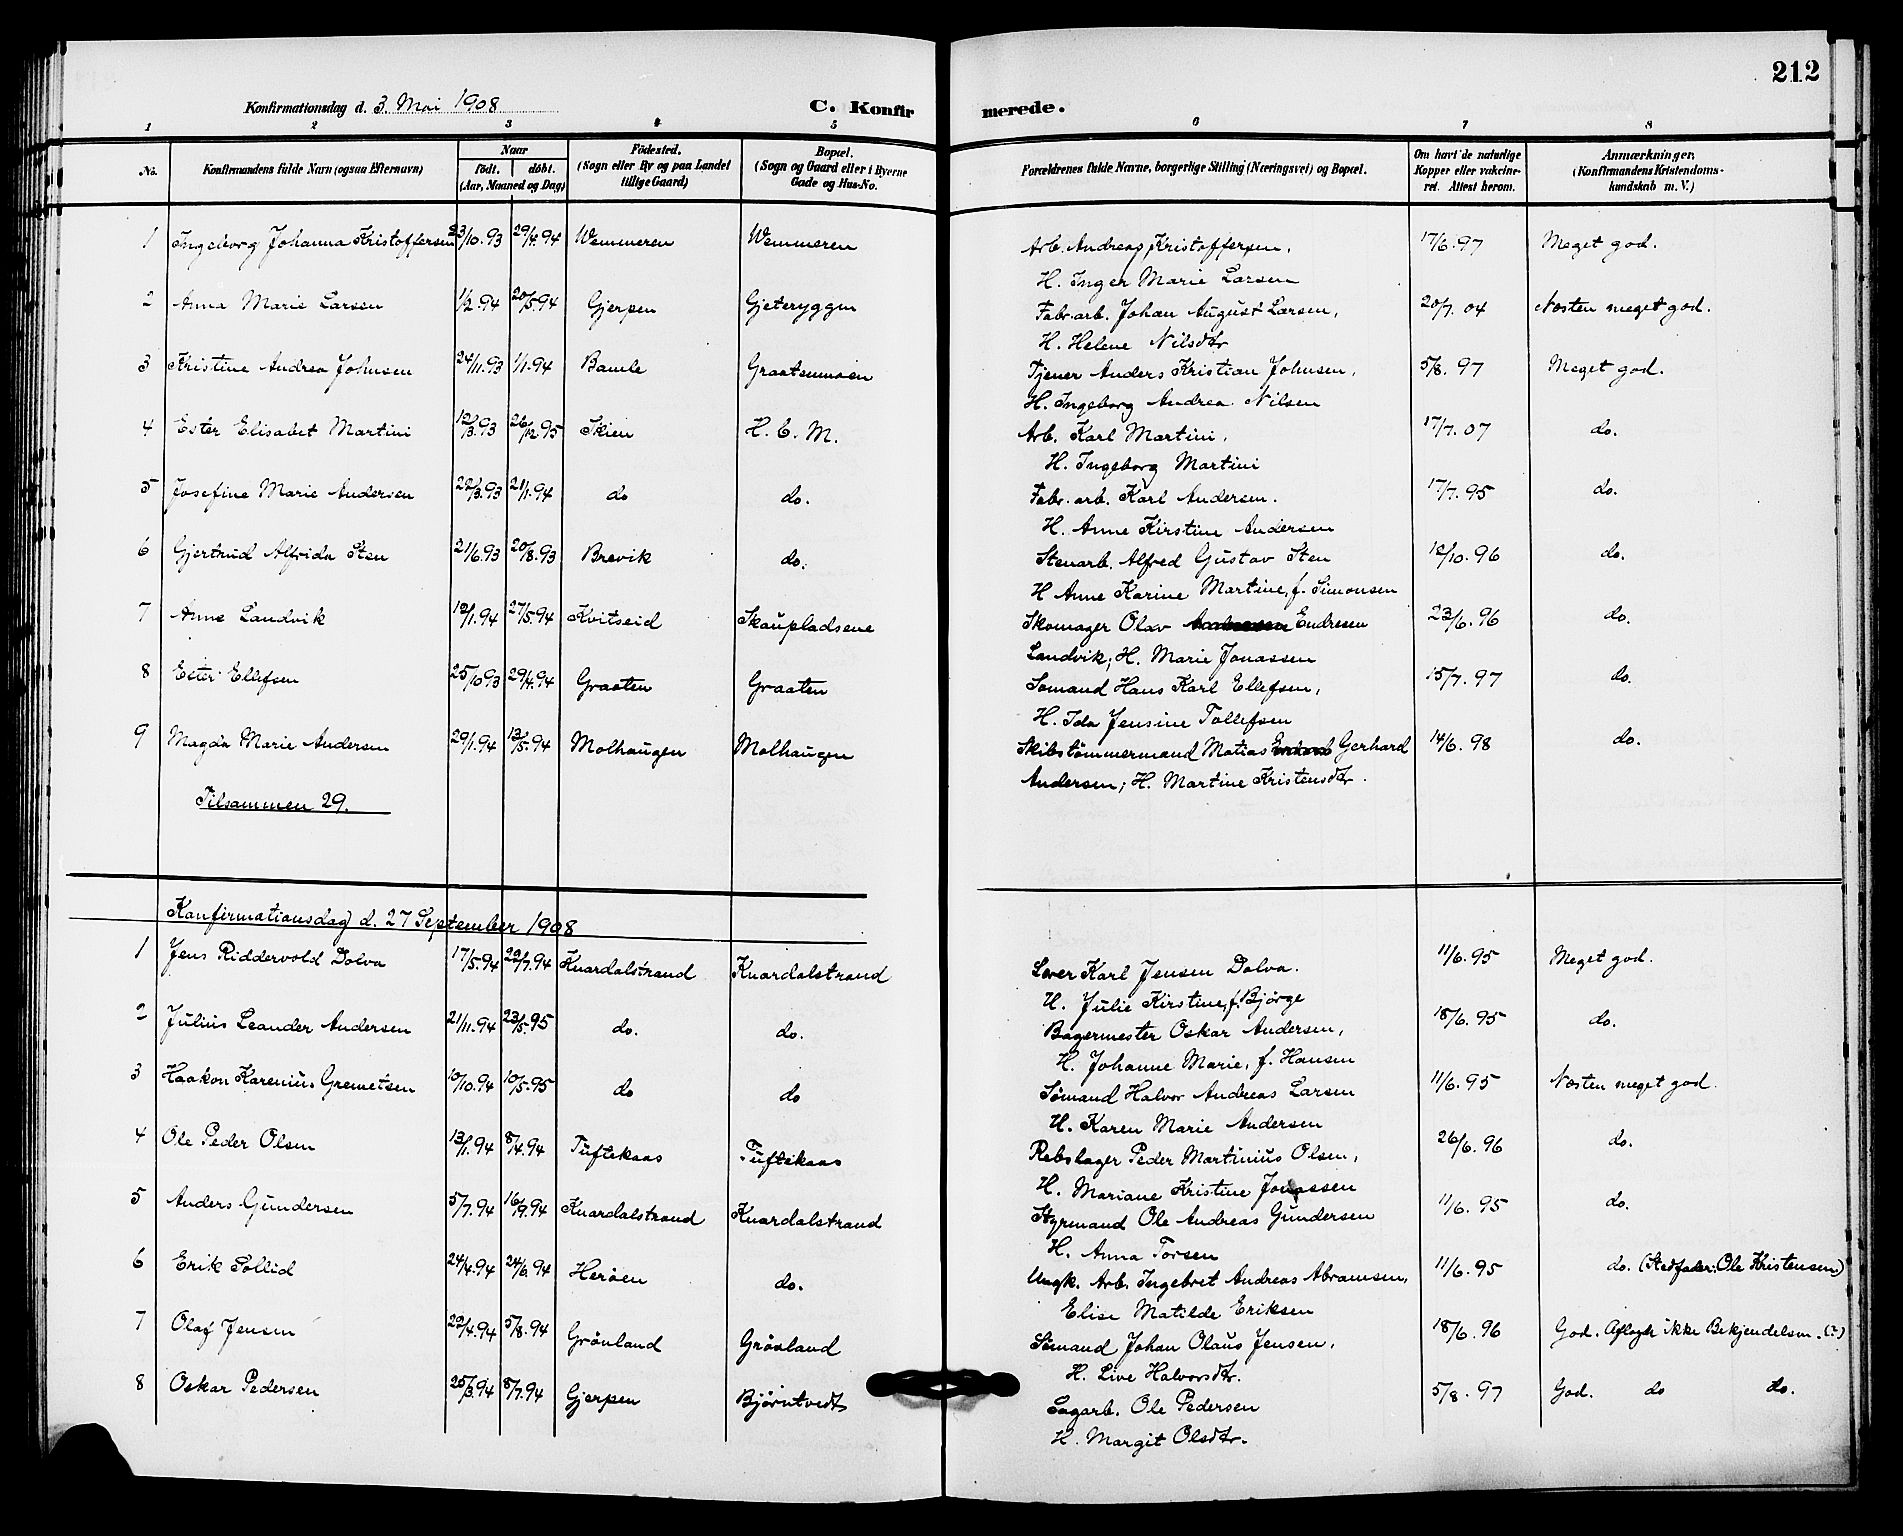 212
Konfirmationsdag d. 3. Mai 1908 C. Konfirmerede.
1 2 3 4 5 6 7 8
No. Konfirmandens fulde Navn (ogsaa Efternavn) Naar födt. döbt. (Aar, Maaned og Dag) Födested. (Sogn eller By og paa Landet tillige Gaard) Bopæl. (Sogn og Gaard eller i Byerne Gade og Hus-No. Forældrenes fulde Navne, borgerlige Stilling (Næringsvei) og Bopæl. Om havt de naturlige Kopper eller vakcineret. Attest herom. Anmærkninger. (Konfirmandens Kristendomskundskab m. V.)
1 Ingeborg Johanna Kristoffersen 23/10.93 29/4.94 Wemmeren Wemmeren Arb. Andreas Kristoffersen, 17/6.97 Meget god.
H. Inger Marie Larsen
2 Anna Marie Larsen 1/2.94 20/5.94 Gjerpen Gjeteryggen Fabr.arb. Johan August Larsen, 20/7.04 Næsten meget god.
H. Helene Nilsdtr
3 Kristine Andrea Johnsen 24/11.93 1/1.94 Bamle Graatenmoen Tjener Anders Kristian Johnsen, 5/8.97 Meget god.
H. Ingeborg Andrea Nilsen
4 Ester Elisabet Martini 12/3.93 26/12.95 Skien H. C. M. Arb. Karl Martini, 17/7.07 do.
H. Ingeborg Martini
5 Josefine Marie Andersen 22/3.93 21/1.94 do do. Fabr.arb. Karl Andersen. 17/7.95 do.
H. Anne Kirstine Andersen
6 Gjertrud Alfrida Sten 21/6.93 20/8.93 Brevik do. Stenarb. Alfred Gustav Sten 12/10.96 do.
H Anne Karine Martine, f. Simonsen
7 Anne Landvik 12/1.94 27/5.94 Kvitseid Skaupladsene Skomager Olav Endresen 23/6.96 do.
Landvik; H. Marie Jonassen
8 Ester Ellefsen 25/10 93 29/4.94 Graaten Graaten Sømand Hans Karl Ellefsen, 15/7.97 do.
H. Ida Jensine Tollefsen
9 Magda Marie Andersen 29/1.94 13/5.94 Molhaugen Molhaugen Skibstømmermand Matias Gerhard 14/6.98 do.
Andersen; H. Martine Kristensdtr.
Tilsammen 29.
Konfirmationsdag d. 27 September 1908
1 Jens Riddervold Dolva 17/5.94 22/7.94 Knardalstrand Knardalstrand Karl Jensen Dolva. 11/6.95 Meget god.
H. Julie Kirstine, f. Bjørge
2 Julius Leander Andersen 21/11.94 23/5.95 do. do. Bagermester Oskar Andersen, 18/6.95 do.
H. Johanne Marie, f. Hansen
3 Haakon Karenius Gremetsen 10/10.94 10/5.95 do do Sømand Halvor Andreas Larsen 11/6.95 Næsten meget god.
H. Karen Marie Andersen
4 Ole Peder Olsen 13/1.94 8/4.94 Tuftekaas Tuftekaas Rebslager Peder Martinius Olsen, 26/6.96 do.
H. Mariane Kristine Jonassen
5 Anders Gundersen 5/7.94 16/9.94 Knardalstrand Knardalstrand Styrmand Ole Andreas Gundersen 11/6.95 do.
H. Anna Torsen
6 Erik Sollid 24/4.94 24/6.94 Herøen do. Ungk. Arb. Ingebret Andreas Abramsen, 11/6.95 do. (Stedfader: Ole Kristensen)
Elise Matilde Eriksen
7 Olaf Jensen 22/4.94 5/8.94 Grönland Grönland Sømand Johan Olaus Jensen, 18/6.96 God. Aflagde ikke Bekjendelsen.
H. Live Halvorsdtr.
8 Oskar Pedersen 25/3.94 8/7.94 Gjerpen Bjørntvedt Sagarb. Ole Pedersen 5/8.97 God. do do.
H. Margit Olsdtr.